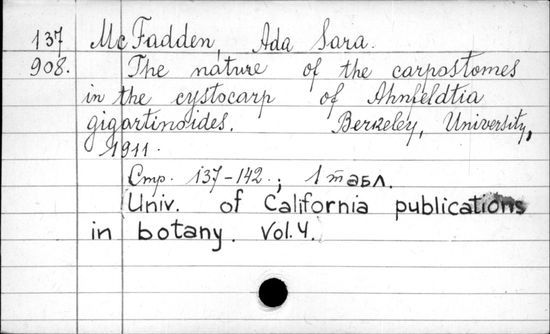 137 McFadden, Ada Sara.
908. The nature of the carpostomes
in the cystocarp of Ahnfeldtia
gigartinoides. Berkeley, University,
1911.
Стр. 137-142.; 1 табл.
Univ. of California publications
in botany. Vol. 4.